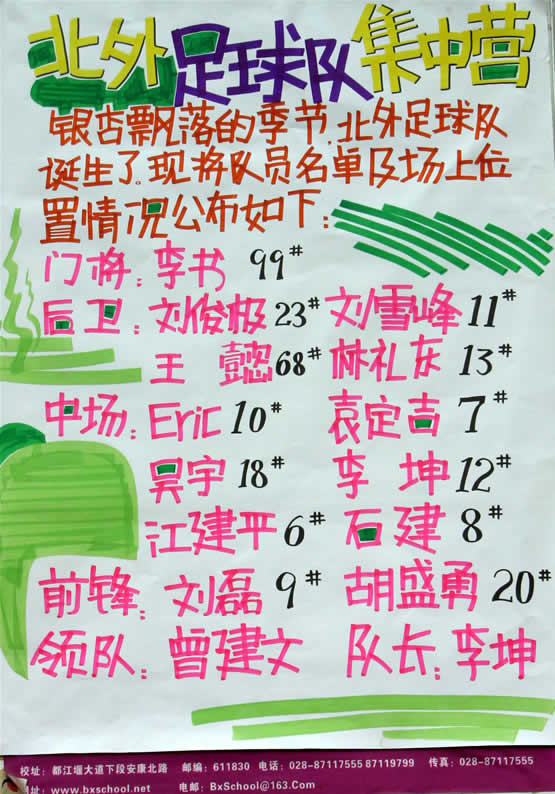 北外足球队集中营
银杏飘落的季节,北外足球队
诞生了。现将队员名单及场上位
置情况公布如下:
门将:李书 99#
后卫:刘俊极 23# 刘雪峰 11#
王懿 68# 林礼灰 13#
中场:Eric 10# 袁定吉 7#
吴宇 18# 李坤 12#
江建平 6# 石建 8#
前锋:刘磊 9# 胡盛勇 20#
领队:曾建文 队长:李坤
校址:都江堰大道下段安康北路 邮编:611830 电话:028-87117555 87119799 传真:028-87117555
网址:www.bxschool.net 电邮:BxSchool@163.Com